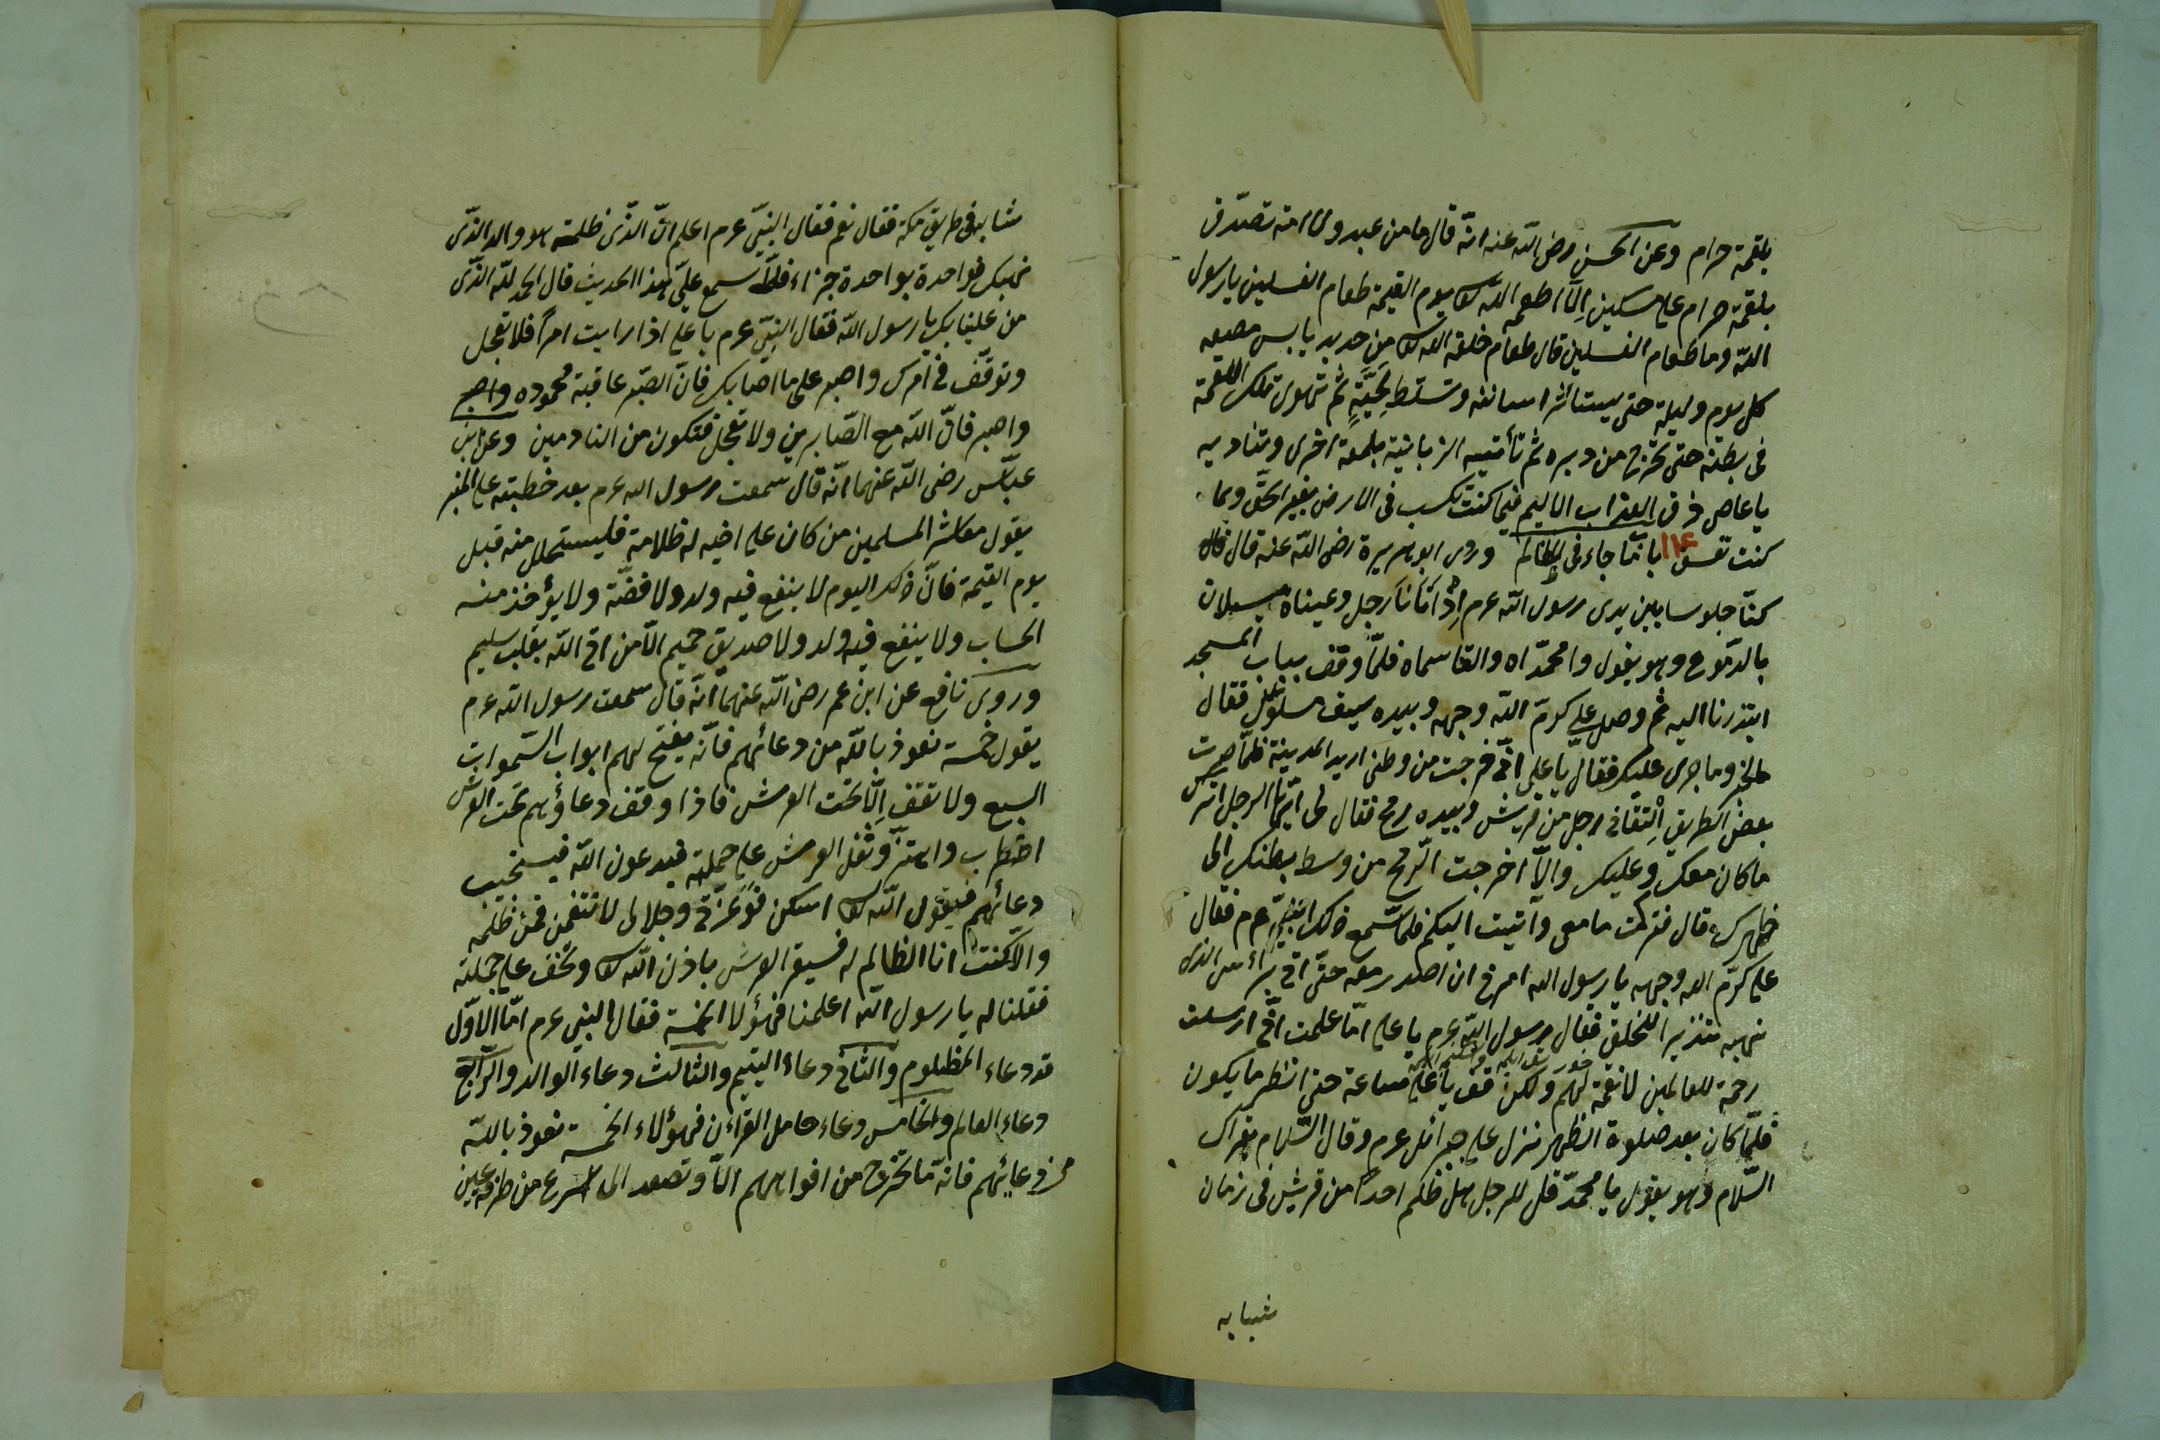 بلقمة حرام وعن الحسن رضى الله عنه انّه قال ما من عبد ولا امة تصدّق
بلقمة حرام على مسكين الّا اطعمه الله يوم القيمة طعام الغسلين يا رسول
الله وما طعام الغسلين قال طعام خلقه الله من حديد يابس
كل يوم وليلة حتى اسنانه وتسقط ثم تهوى تلك اللقمة
فى بطنه حتى تخرج من دبره ثم تأتيه الزبانية بلقمة اخرى وتناديه
يا عاصى ذق العذاب الاليم فيما كنت تكسب فى الارض بغير الحقّ وبما
كنت تفسق باب ما جاء فى المظالم وروى ابو هريرة رضى الله عنه قال قال
كنّا جلوسا بين يدى رسول الله عرم اذ اتانا رجل وعيناه تسيلان
بالدموع وهو يقول وامحمّداه والقاسماه فلمّا وقف بباب المسجد
ابتدرنا اليه ثم وصل على كرم الله وجهه وبيده سيف مسلول فقال
ما الخبر وما جرى عليك فقال يا على انّى خرجت من وطنى اريد المدينة فلمّا صرت
بعض الطريق التقانى رجل من قريش وبيده رمح فقال لى ايّها الرجل اترك
ما كان معك وعليك والّا اخرجت الرّمح من وسط بطنك الى
ظهرك قال فتركت ما معى وآتيت اليكم فلمّا سمع ذلك النبىّ عرم فقال
على كرّم الله وجهه يا رسول الله امرنى ان اصدر معه حتّى آتى برأس الذى
نهبه نذيرا للخلق فقال رسول الله عرم يا على امّا علمت انّى ارسلت
رحمة للعالمين لا نقمة لهم ولكن قف يا على ساعة حتى انظر ما يكون
فلمّا كان بعد صلوة الظهر نزل على جبرائل عرم وقال السّلام يقراك
السّلام وهو يقول يا محمّد قل للرجل هل ظلم احدا من قريش فى زمان
شبابه
شابه فى طريق مكة فقال نعم فقال النبىّ عرم اعلم انّ الذّى ظلمته هو والد الذّى
نهبك فواحدة بواحدة جزاء فلمّا سمع علىّ هذا الحديث قال الحمد لله الذّى
من علينا بك يا رسول الله فقال النبىّ عرم يا على اذا رايت امرا فلا تعجل
وتوقّف فى امرك واصبر على ما اصابك فانّ الصّبر عاقبة محموده واصبر
واصبر فانّ الله مع الصّابرين ولا تعجل فتكون من النادمين وعن ابن
عبّاس رضى الله عنهما انّه قال سمعت رسول الله عرم بعد خطبته على المنبر
يقول معاشر المسلمين من كان على اخيه له ظلامة فليستحلل منه قبل
يوم القيمة فانّ ذلك اليوم لا ينفع فيه ولد ولا فضّة ولا يؤخذ منه
الحساب ولا ينفع فيه ولد ولا صديق حميم الّا من اتى الله بقلب سليم
وروى نافع عن ابن عمر رضى الله عنهما انّه قال سمعت رسول الله عرم
يقول خمسة نعوذ بالله من دعائهم فانّه يفتح لهم ابواب السّموات
السبع ولا تقف الّا تحت العرش فاذا وقف دعاؤهم تحت العرش
اضطراب واهتزّ وثقل العرش على حملته فيدعون الله فيستجيب
دعائهم فيقول الله اسكن فوعزّتى وجلالى لا نتقمن فمن ظلمه
والّا كنت انا الظالم له فسيقر العرش باذن الله وتخف على حملته
فقلنا له يا رسول الله اعلمنا فهؤلا الخمسة فقال النبى عرم امّا الاوّل
قد دعاء المظلوم والثانى دعاء اليتيم والثالث دعاء الوالد والرّابع
دعاء العالم والخامس دعاء حامل القران فهؤلاء الخمسة نعوذ بالله
من دعائهم فانّه ما تخرج من افواههم الّا وتصعد الى اسرع من طرفة عين